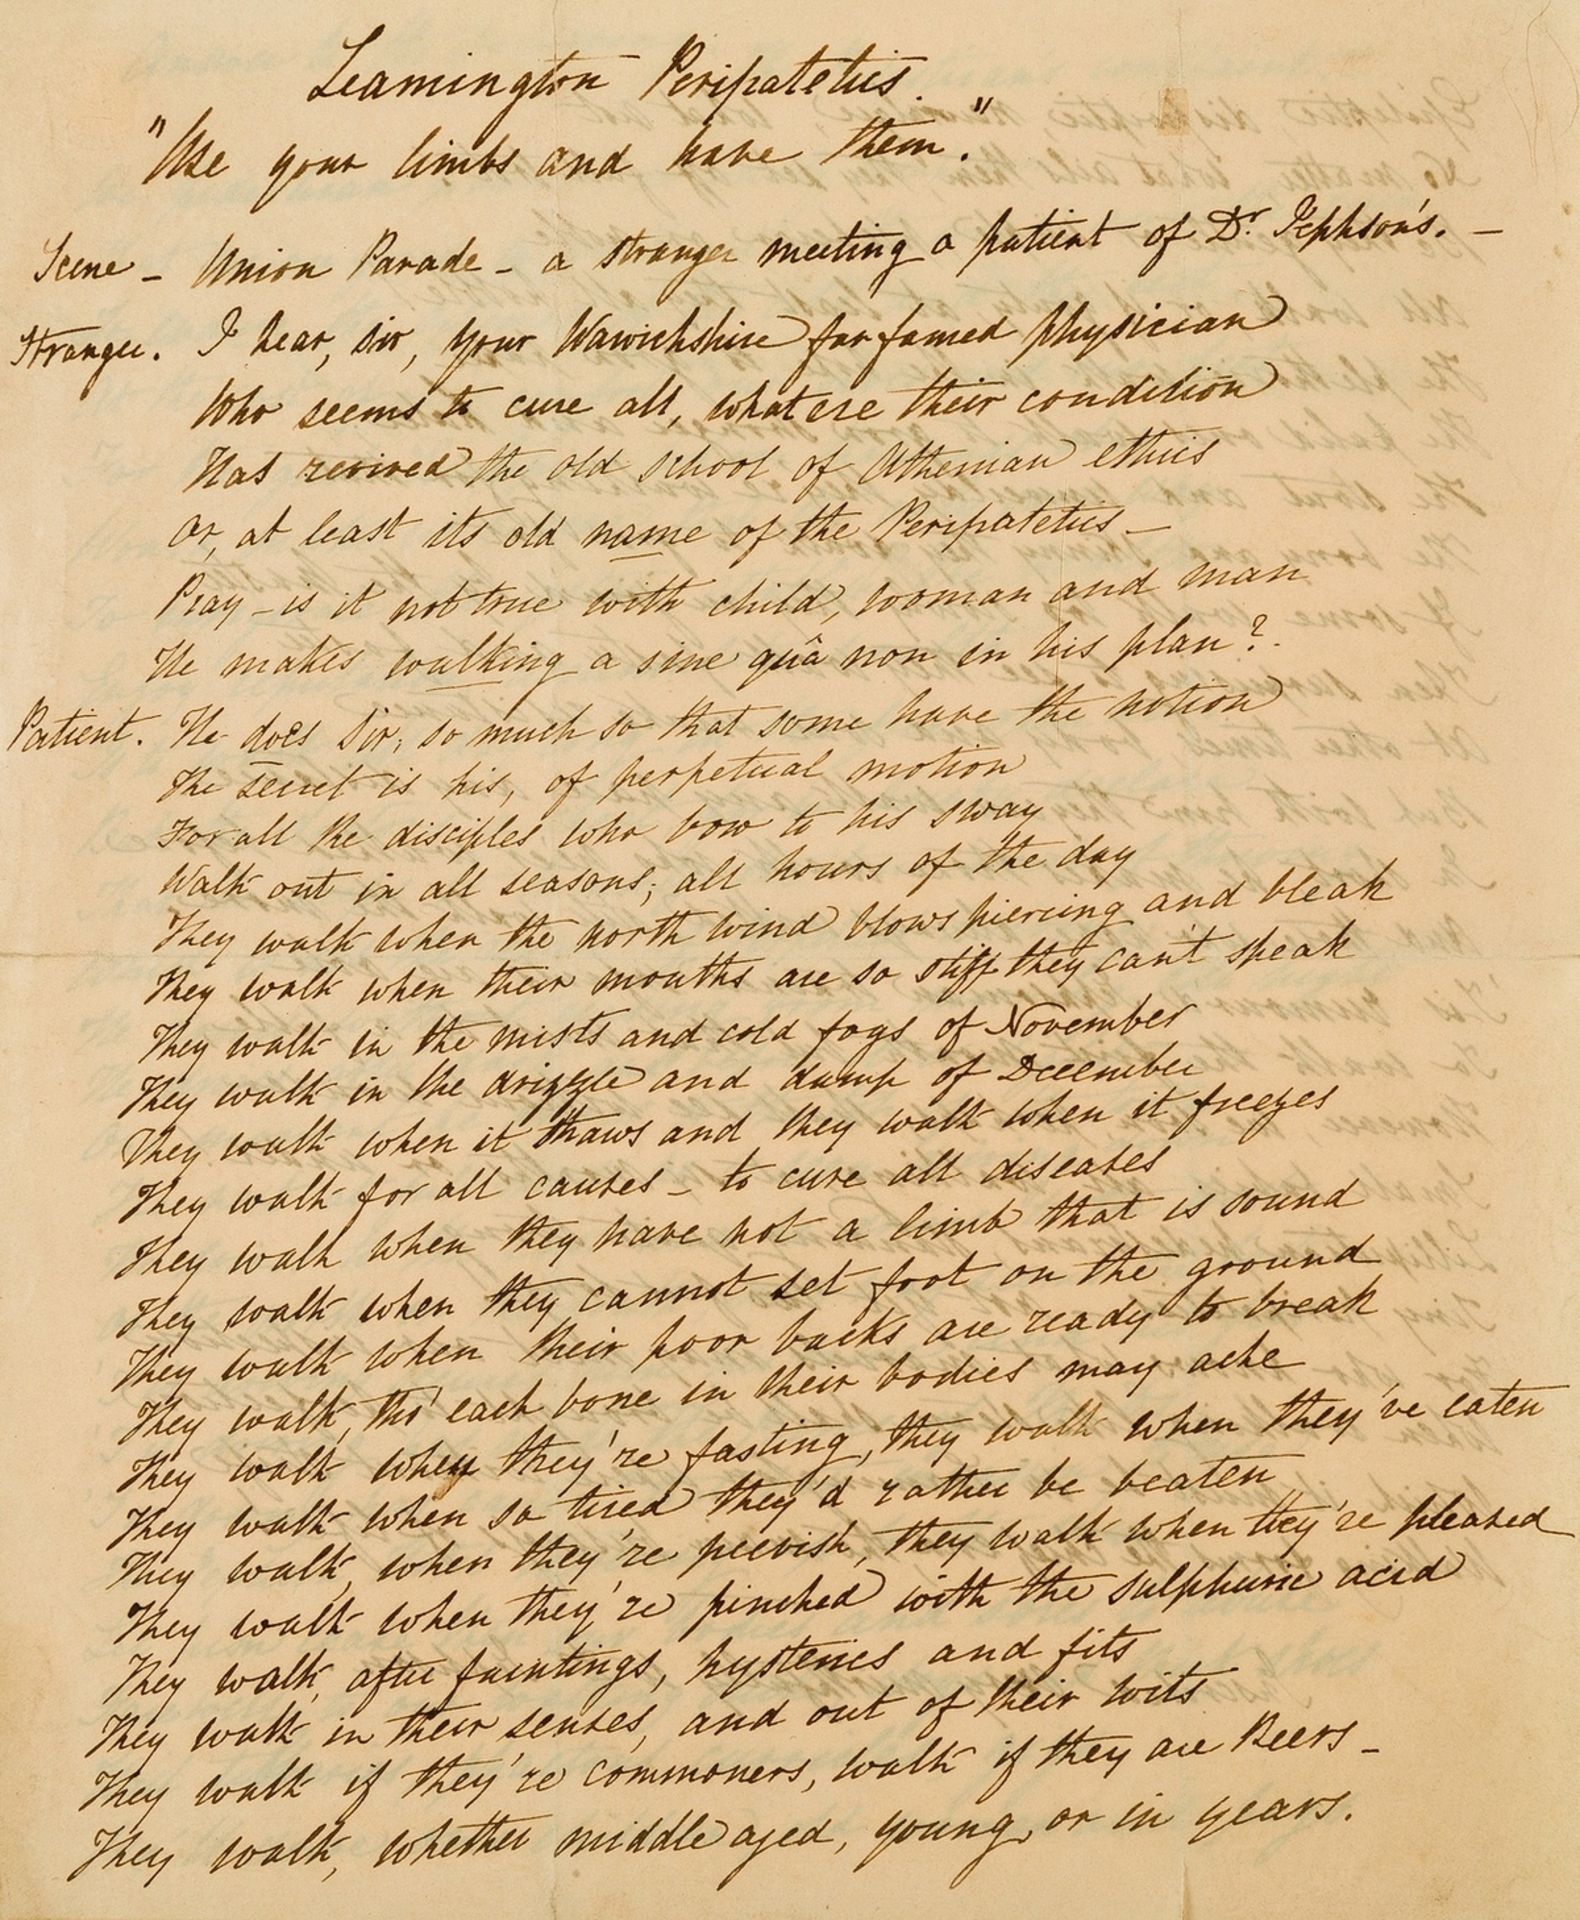 Leamington Peripatetics.
"Use your limbs and have them."
Scene - Union Parade - a stranger meeting a patient of Dr. Jephson's. -
Stranger. I hear, sir, your Warwickshire far famed physician
Who seems to cure all, whate'er their condition
Has revived the old school of Athenian ethics
Or, at least its old name of the Peripatetics -
Pray - is it not true with child, woman and man
He makes walking a sine quâ non in his plan?
Patient. He does Sir; so much so that some have the notion
The secret is his, of perpetual motion
For all the disciples who bow to his sway
Walk out in all seasons; all hours of the day
They walk when the north wind blows piercing and bleak
They walk when their mouths are so stiff they can't speak
They walk in the mists and cold fogs of November
They walk in the drizzle and damp of December
They walk when it thaws and they walk when it freezes
They walk for all causes - to cure all diseases
They walk when they have not a limb that is sound
They walk when they cannot set foot on the ground
They walk when their poor backs are ready to break
They walk, tho' each bone in their bodies may ache
They walk when they're fasting, they walk when they've eaten
They walk when so tired they'd rather be beaten
They walk, when they're peevish, they walk when they're pleased
They walk when they're pinched with the sulphuric acid
They walk, after faintings, hysterics and fits
They walk in their senses, and out of their wits
They walk if they're commoners, walk if they are Peers -
They walk, whether middle aged, young, or in years.